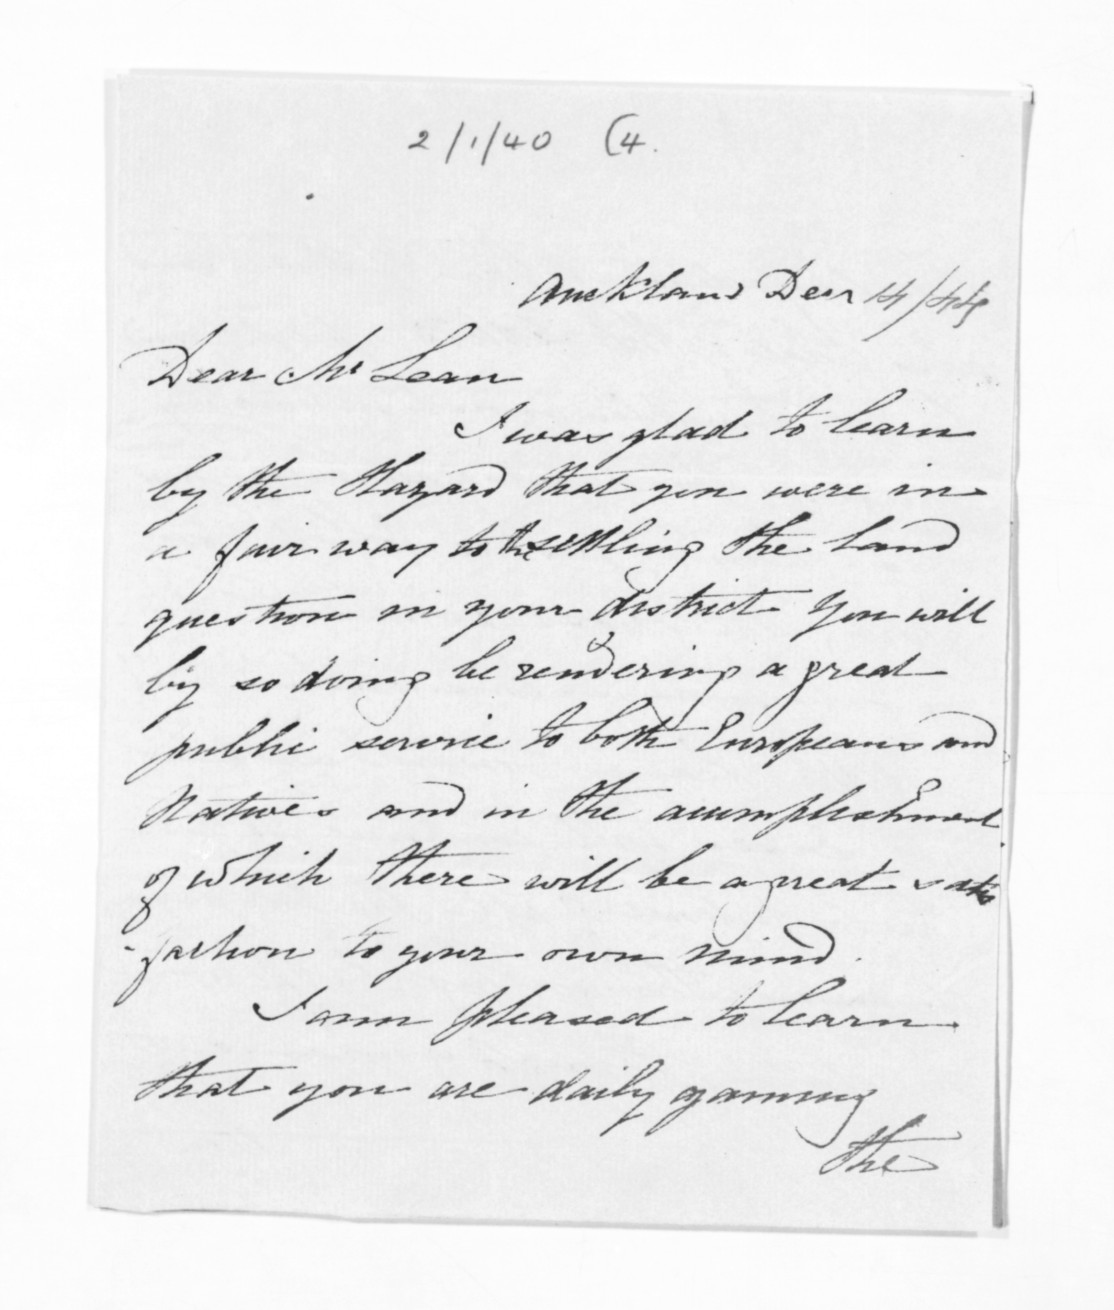 2/1/40 (4.
Auckland Decr 14/44
Dear Mr Lean
I was glad to learn
by the Hazard that you were in
a fair way to the settling the land
question in your district You will
by so doing be rendering a great
public service to both Europeans and
Natives and in the accomplishment
of which there will be a great satis
-faction to your own mind.
I am pleased to learn
that you are daily gaining
the